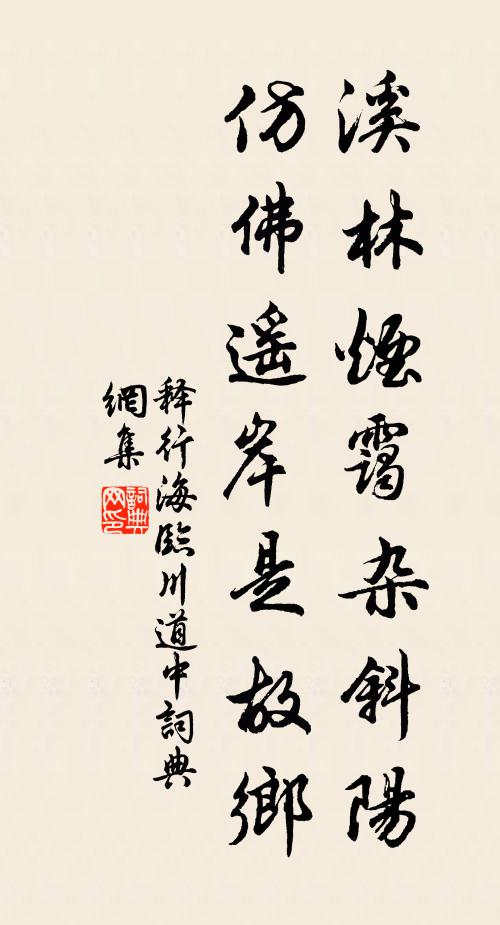 溪林煙靄杂斜陽
仿佛遥岸是故鄉
释行海臨川道中詞典
網集
詞典网印